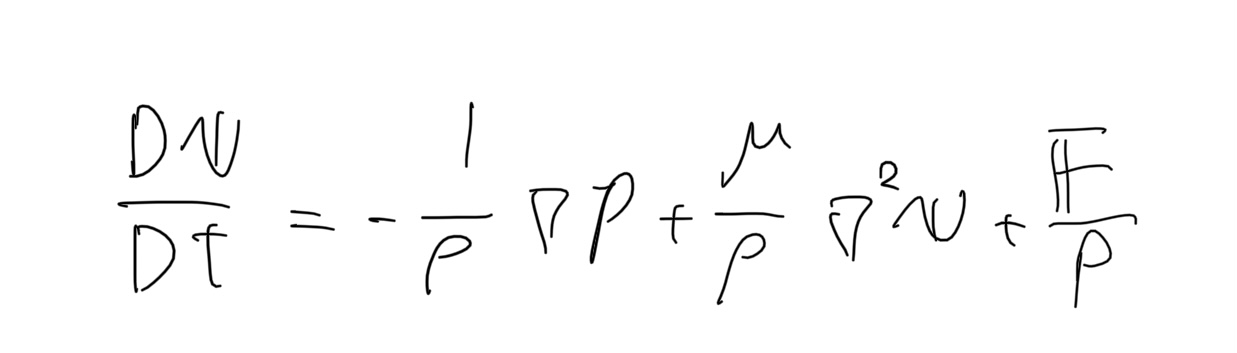 D𝕧/Dt = -1/ρ ∇p + μ/ρ ∇²𝕧 + 𝔽/ρ